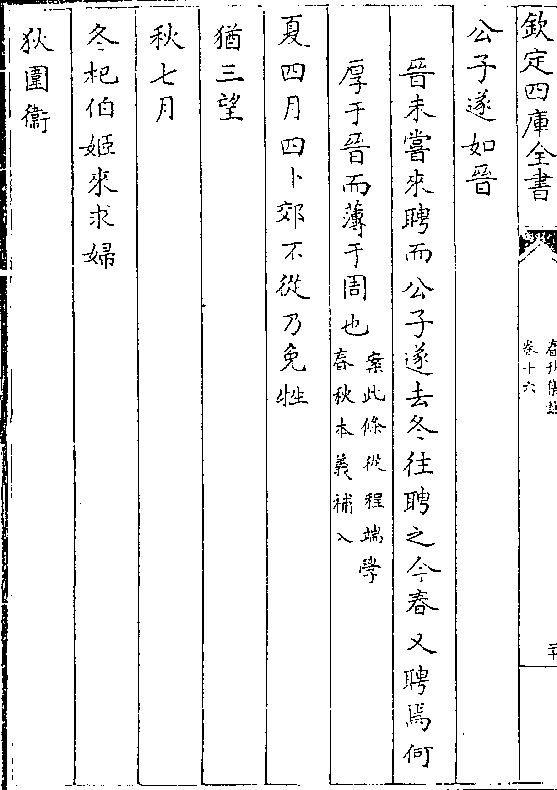 欽定四庫全書
卷十六
公子遂如晉
晉未嘗來聘而公子遂去冬往聘之今春又聘焉何
厚于晉而薄于周也案此條從程端學
春秋本義補入
夏四月四卜郊不從乃免牲
猶三望
秋七月
冬杞伯姬來求婦
狄圍衞